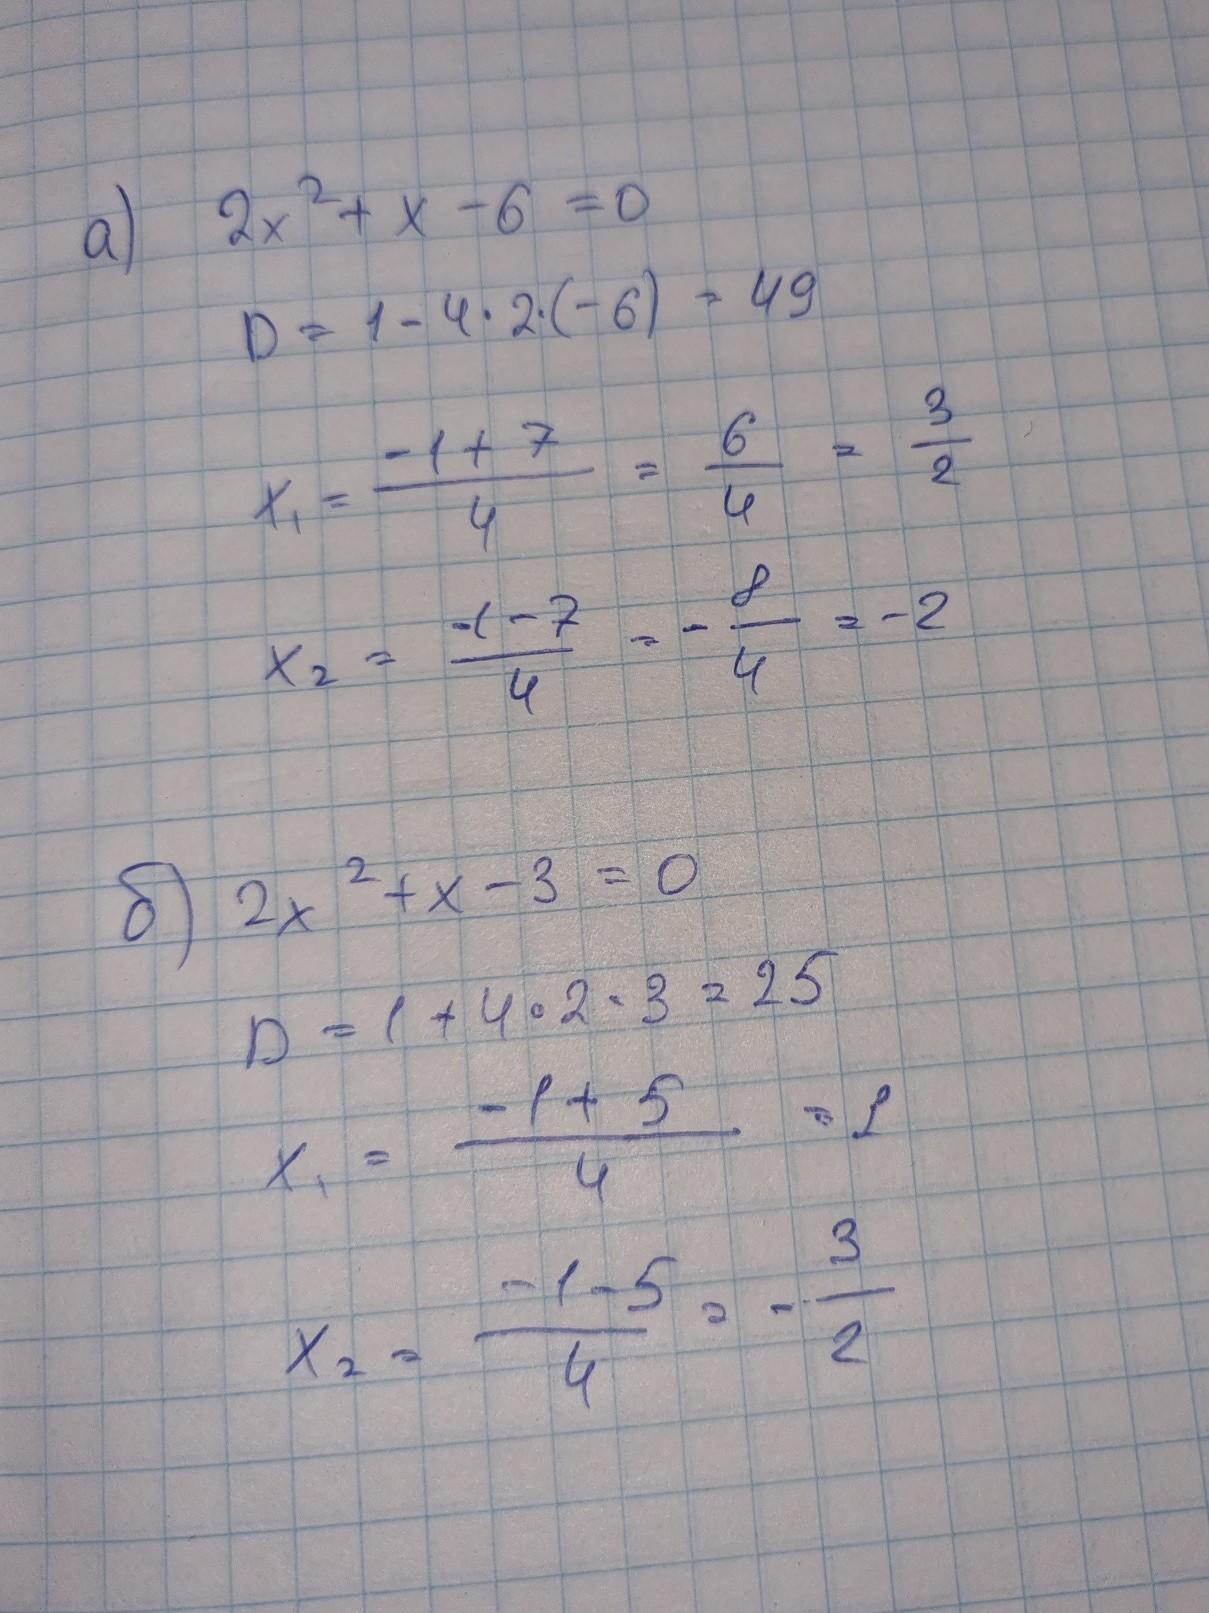 а) 2x² + x - 6 = 0
D = 1 - 4·2·(-6) = 49
x₁ = (-1 + 7)/4 = 6/4 = 3/2
x₂ = (-1 - 7)/4 = -8/4 = -2
б) 2x² + x - 3 = 0
D = 1 + 4·2·3 = 25
x₁ = (-1 + 5)/4 = 1
x₂ = (-1 - 5)/4 = -3/2